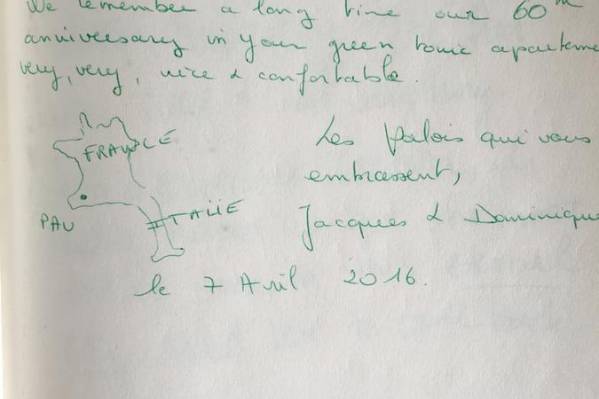 We remember a long time our 60th
anniversary in your green tonic aparteme
very, very, nice & confortable.
FRANCE
PAU
ITALIE
Les Palois qui vous
embrassent,
Jacques & Dominique
le 7 Avril 2016.